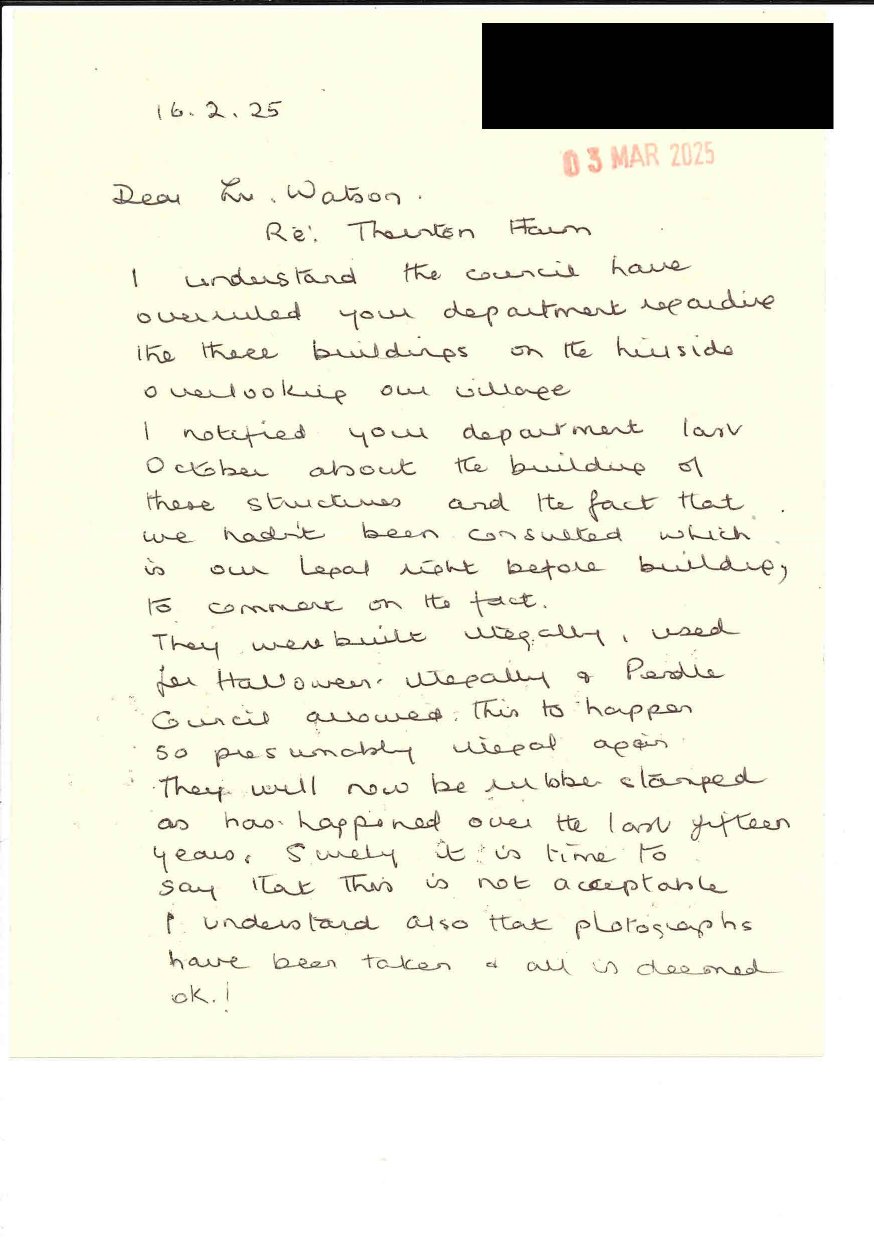 16.2.25
03 MAR 2025
Dear Mr. Watson.
Re: Thornton Farm
I understand the council have
overruled your department regarding
the three buildings on the hillside
overlooking our village
I notified your department last
October about the building of
these structures and the fact that
we hadn't been consulted which
is our legal right before building,
to comment on the fact.
They were built illegally, used
for Halloween illegally & Pendle
Council allowed this to happen
so presumably illegal again
They will now be rubber stamped
as has happened over the last fifteen
years. Surely it is time to
say that this is not acceptable
I understand also that photographs
have been taken & all is deemed
ok.!